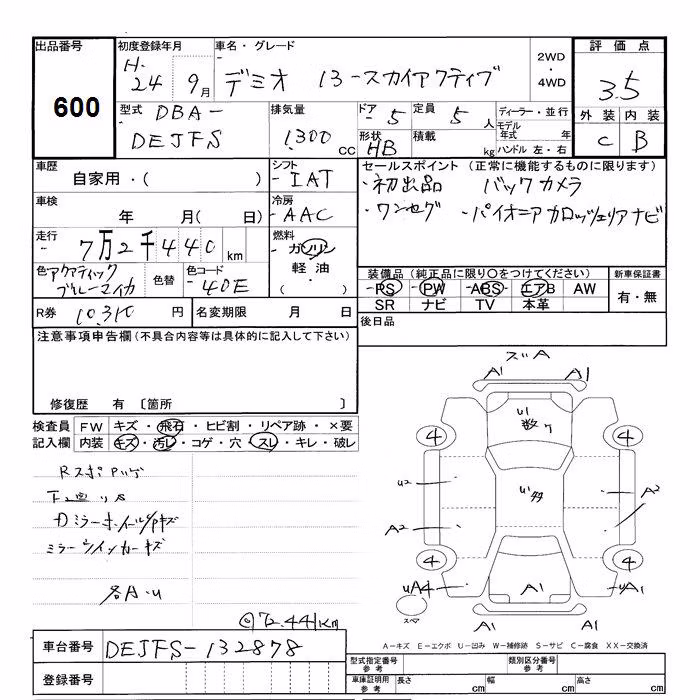 出品番号
600
初度登録年月
H-24 9月
車名・グレード
デミオ 13-スカイアクティブ
2WD
・
4WD
評価点
3.5
外装 内装
C B
型式
DBA-
DEJFS
排気量
1,300 CC
ドア - 5
定員 5 人
形状 HB
積載 kg
ディーラー・並行
モデル
年式 年
ハンドル 左・右
車歴
自家用・( )
シフト
- IAT
セールスポイント (正常に機能するものに限ります)
・初出品 バックカメラ
・ワンセグ ・パイオニア カロッツェリアナビ
車検
年 月( 日)
冷房
- AAC
走行
7万2千440 km
燃料
- ガソリン
軽油
・( )
色 アクアティック
ブルーマイカ
色替
色コード
- 40E
装備品 (純正品に限り〇をつけてください)
- PS - PW - ABS - エアB AW
SR ナビ TV 本革
新車保証書
有・無
R券 10,310 円
名変期限 月 日
後日品
注意事項申告欄 (不具合内容等は具体的に記入して下さい)
修復歴 有 〔箇所 〕
検査員
記入欄
FW キズ・飛石・ヒビ割・リペア跡・×要
内装 キズ・汚レ・コゲ・穴・スレ・キレ・破レ
ミラーウインカーキズ
各A・U
@72.441km
A1 A1
4 4
U2 A2
A2
4 4
UA4 A1 UA1
A1 A1
A-キズ E-エクボ U-凹み W-補修跡 S-サビ C-腐食 XX-交換済
車台番号 DEJFS-132878
登録番号
型式指定番号
参考
類別区分番号
参考
車庫証明用
参考
長さ cm 幅 cm 高さ cm